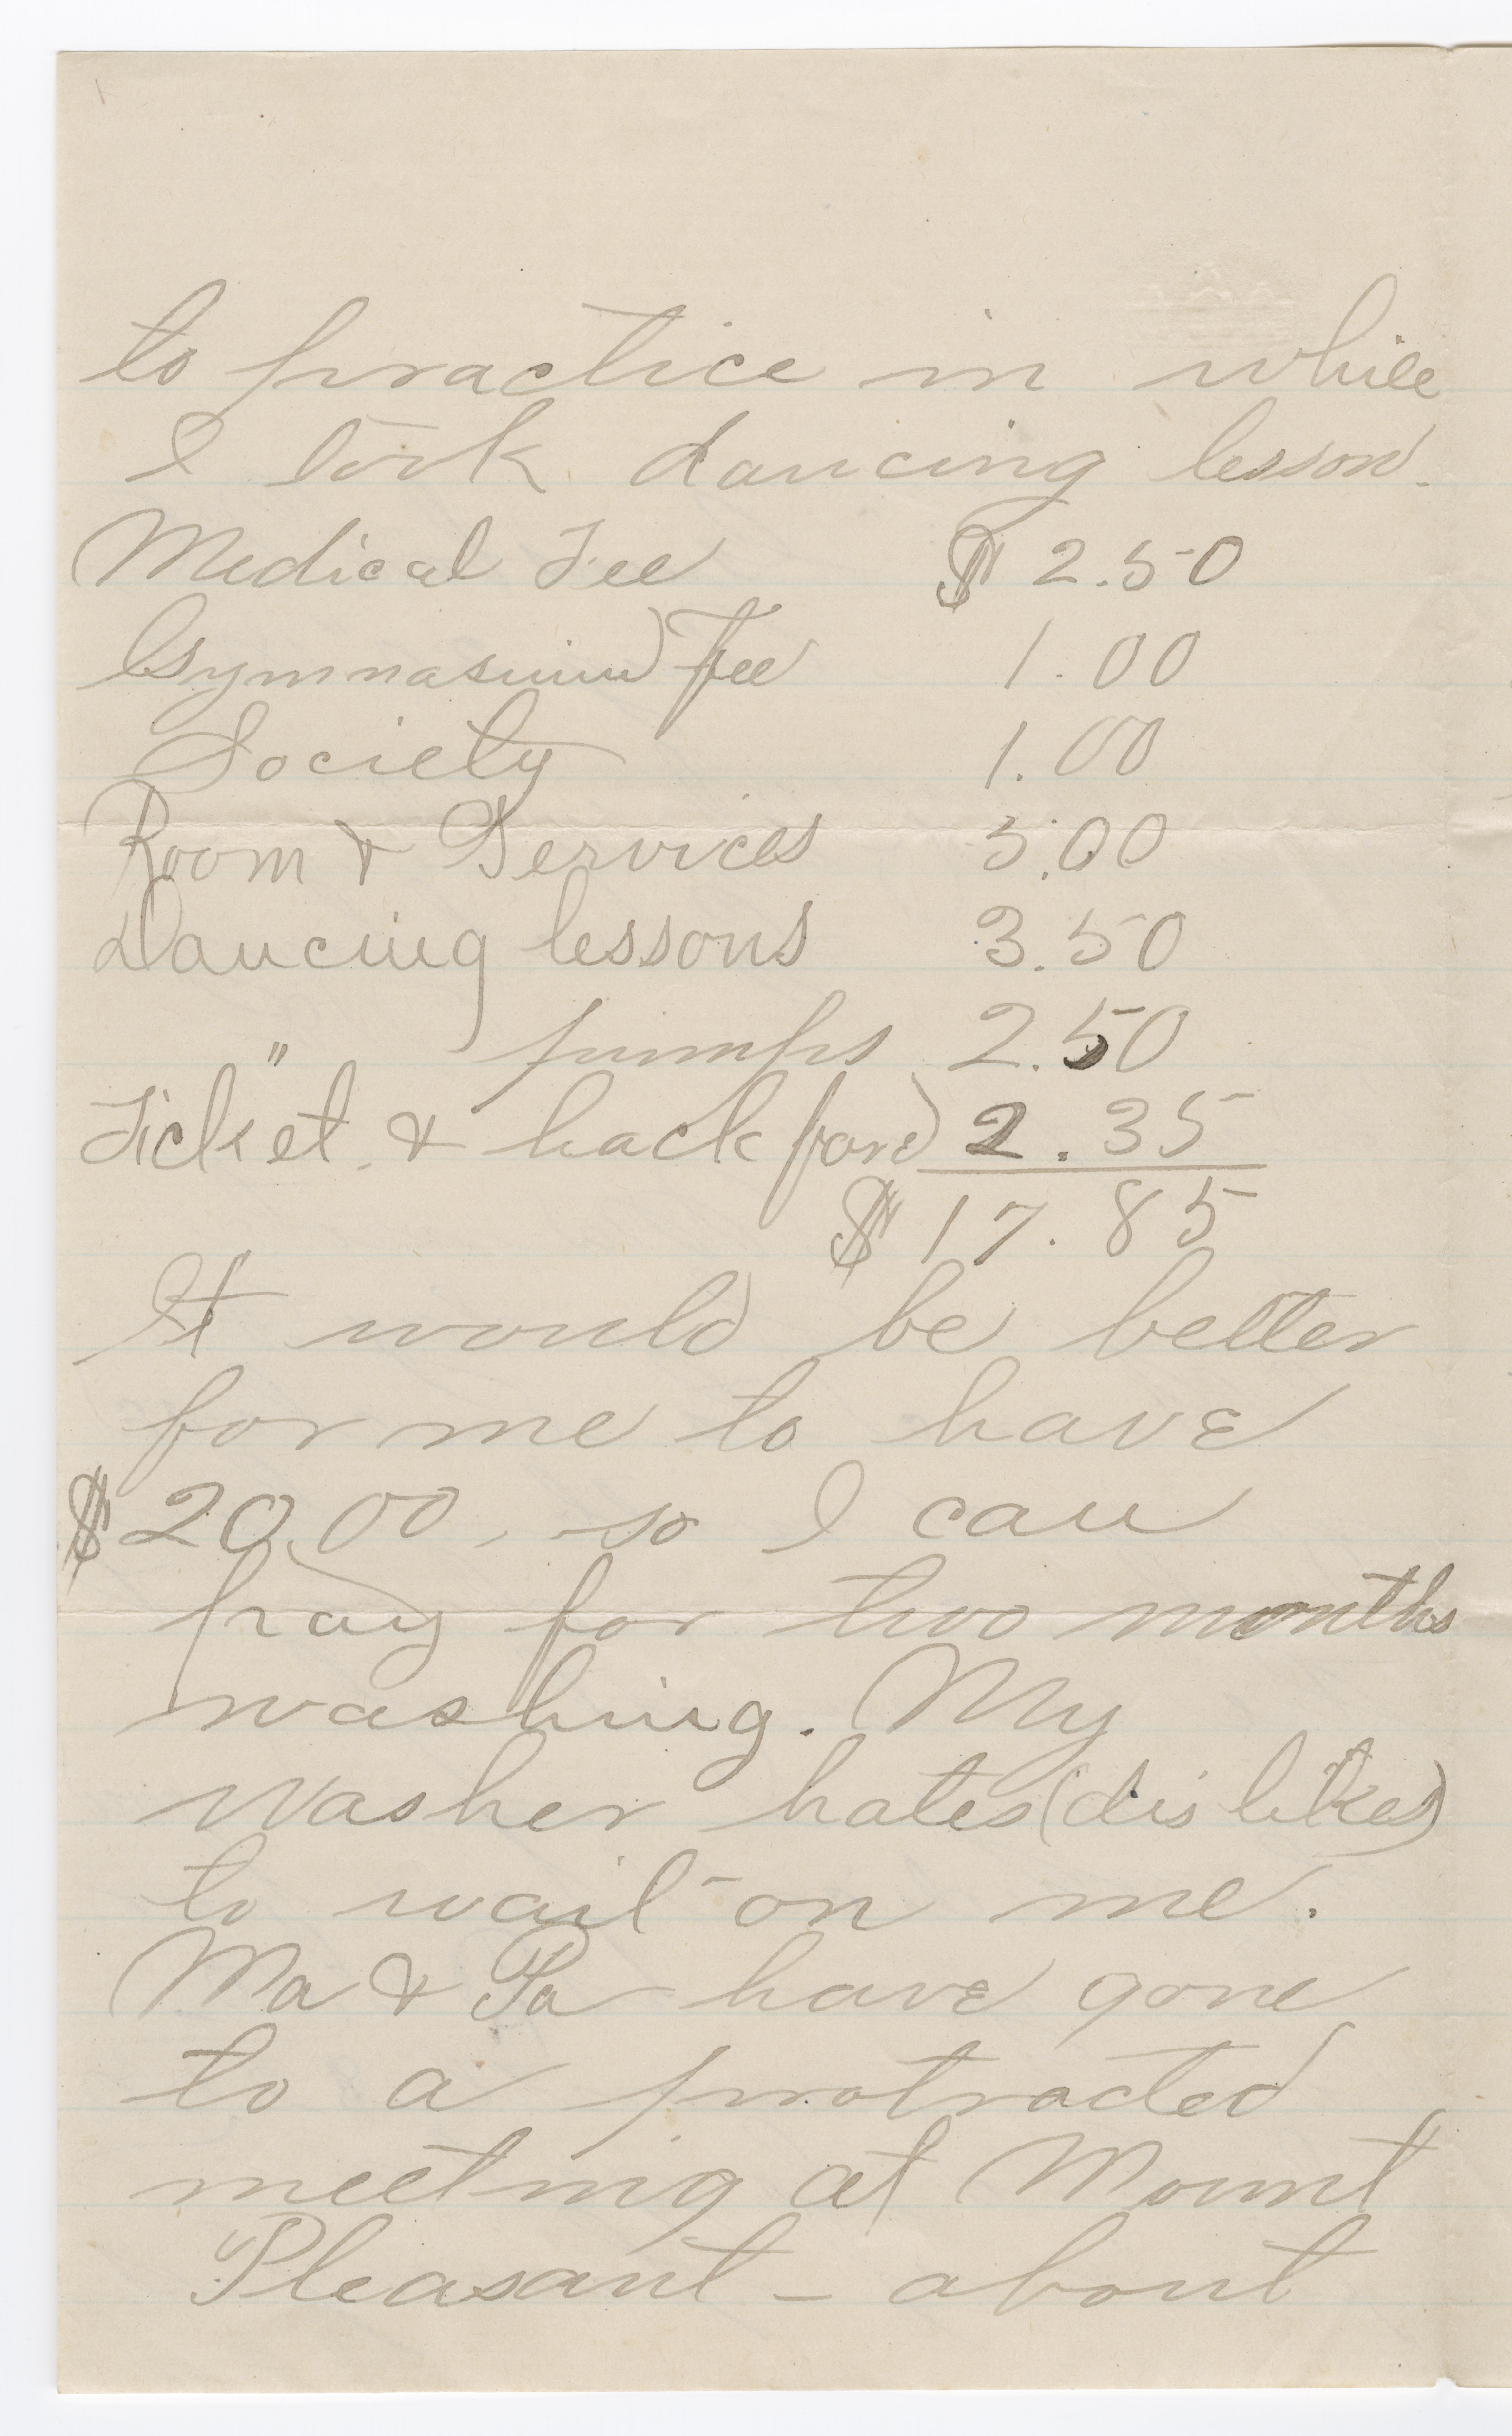 to practice in while
I took dancing lesson.
Medical Fee $ 2.50
Gymnasium Fee 1.00
Society 1.00
Room & Services 5.00
Dancing lessons 3.50
" pumps 2.50
Ticket & hack fare 2.35
$ 17.85
It would be better
for me to have
$20.00, so I can
pay for two months
washing. My
washer hates (dislikes)
to wait on me.
Ma & Pa have gone
to a protracted
meeting at Mount
Pleasant - about